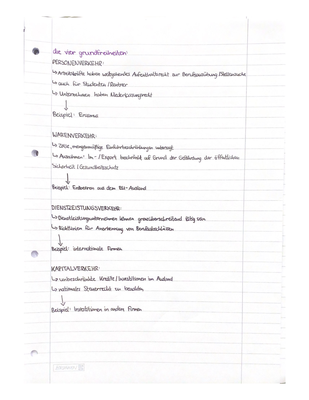 die vier grundfreiheiten:
PERSONENVERKEHR:
↳ Arbeitskräfte haben weitgehendes Aufenthaltsrecht zur Berufsausübung/Stellensuche
↳ auch für Studenten/Rentner
↳ Unternehmen haben Niederlassungsrecht
↓
Beispiel: Erasmus
WARENVERKEHR:
↳ Zölle, mengenmäßige Einfuhrbeschränkungen untersagt
↳ Ausnahmen: In-/Export beschränkt auf Grund der Gefährdung der öffentlichen
Sicherheit/Gesundheitsschutz
↓
Beispiel: Exportieren aus dem EU-Ausland
DIENSTLEISTUNGSVERKEHR:
↳ Dienstleistungsunternehmen können grenzüberschreitend tätig sein
↳ Richtlinien für Anerkennung von Berufsabschlüssen
↓
Beispiel: internationale Firmen
KAPITALVERKEHR:
↳ unbeschränkte Kredite/Investitionen im Ausland
↳ nationales Steuerrecht zu beachten
↓
Beispiel: Investitionen in andere Firmen